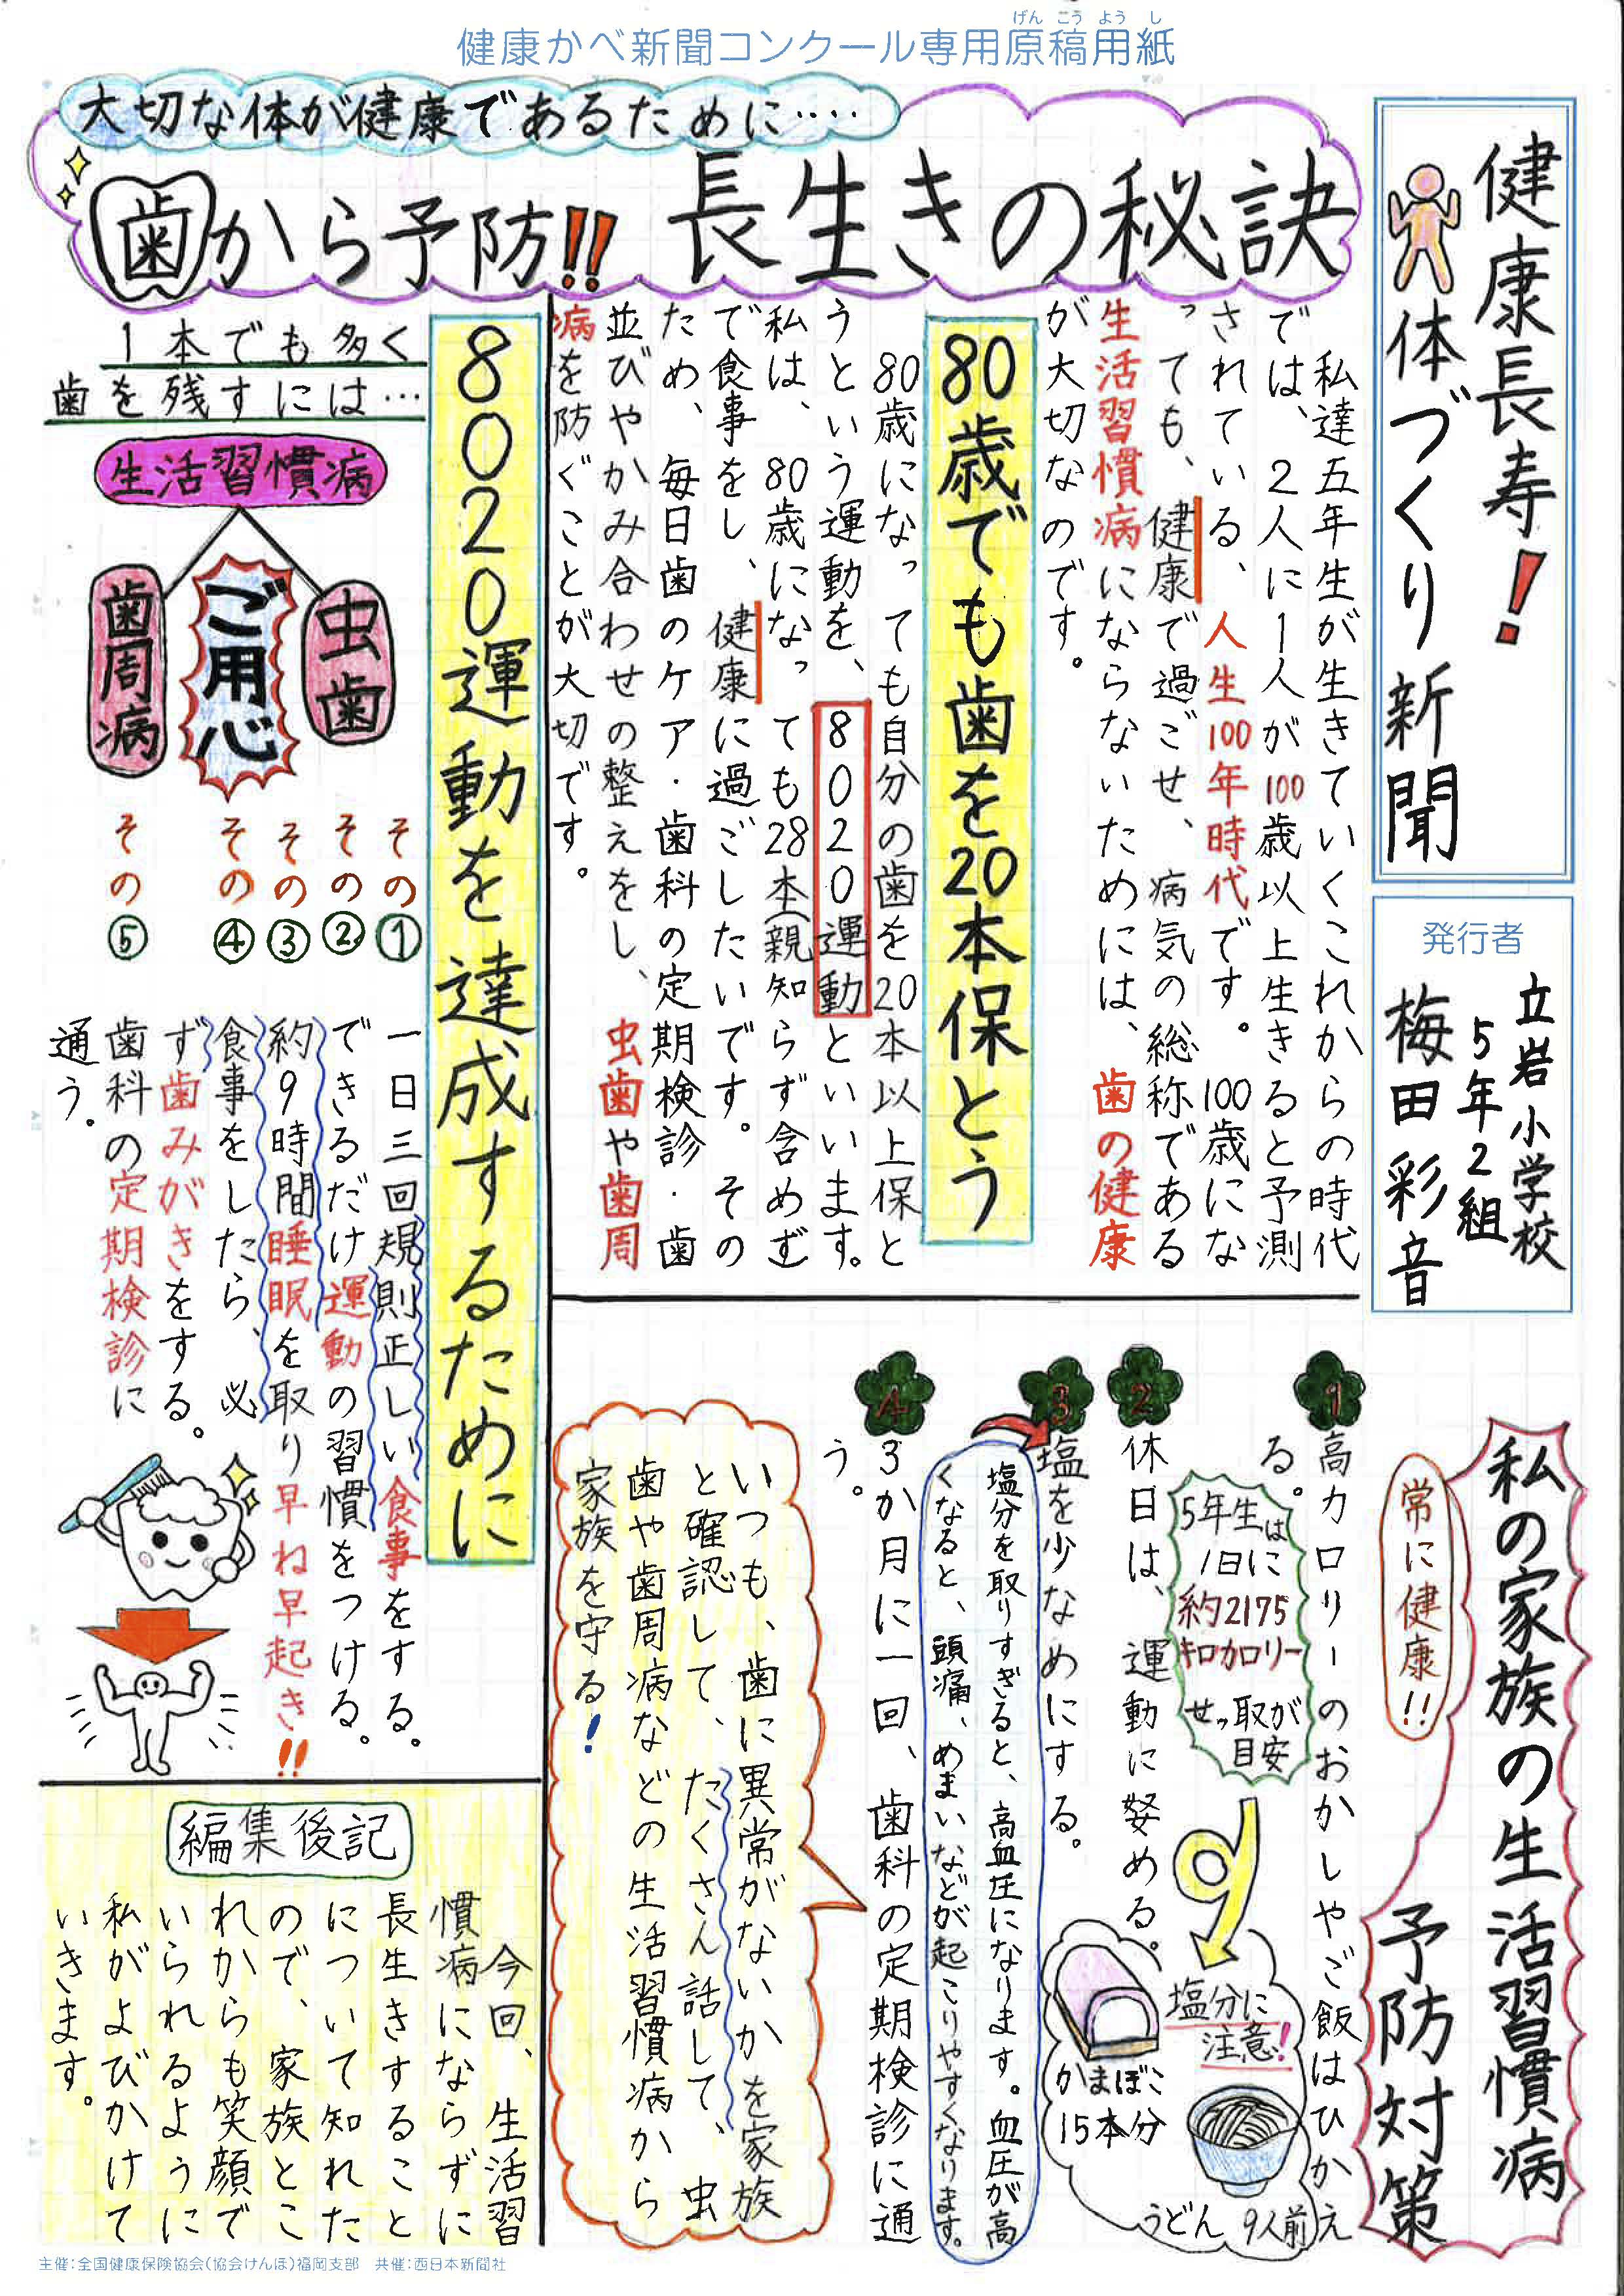 健康かべ新聞コンクール専用原稿用紙
げんこうようし
健康長寿!
体づくり新聞
発行者
立岩小学校
5年2組
梅田彩音
大切な体が健康であるために‥‥
歯から予防!! 長生きの秘訣
私達五年生が生きていくこれからの時代
では、2人に1人が100歳以上生きると予測
されている、人生100年時代です。100歳にな
っても、健康で過ごせ、病気の総称である
生活習慣病にならないためには、歯の健康
が大切なのです。
80歳でも歯を20本保とう
80歳になっても自分の歯を20本以上保と
うという運動を、8020運動といいます。
私は、80歳になっても28本(親知らず含めず
で食事をし、健康に過ごしたいです。その
ため、毎日歯のケア・歯科の定期検診・歯
並びやかみ合わせの整えをし、虫歯や歯周
病を防ぐことが大切です。
8020運動を達成するために
1本でも多く
歯を残すには…
生活習慣病
虫歯
ご用心
歯周病
その① 一日三回規則正しい食事をする。
その② できるだけ運動の習慣をつける。
その③ 約9時間睡眠を取り早ね早起き!!
その④ 食事をしたら、必
ず歯みがきをする。
その⑤ 歯科の定期検診に
通う。
私の家族の生活習慣病
予防対策
常に健康!!
1 高カロリーのおかしやご飯はひかえ
る。
5年生は
1日に
約2175
キロカロリー
せっ取が
目安
2 休日は、運動に努める。
塩分に
注意!
かまぼこ
15本分
うどん 9人前
3 塩を少なめにする。
塩分を取りすぎると、高血圧になります。血圧が高
くなると、頭痛、めまいなどが起こりやすくなります。
4 3か月に一回、歯科の定期検診に通
う。
いつも、歯に異常がないかを家族
と確認して、たくさん話して、虫
歯や歯周病などの生活習慣病から
家族を守る!
編集後記
今回、生活習
慣病にならずに
長生きすること
について知れた
ので、家族とこ
れからも笑顔で
いられるように
私がよびかけて
いきます。
主催:全国健康保険協会(協会けんぽ)福岡支部 共催:西日本新聞社